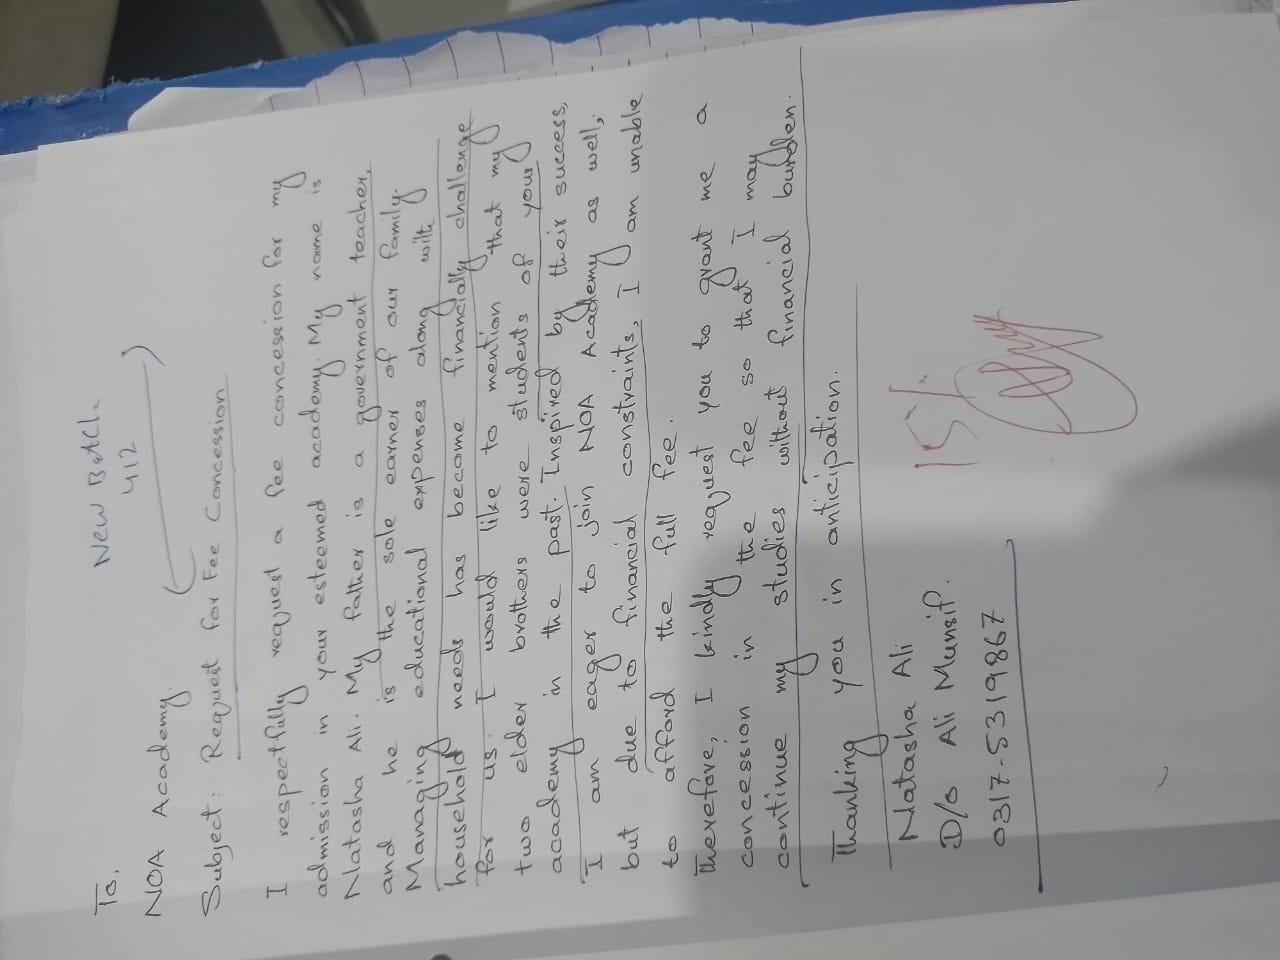 New Batch
412
To,
NOA Academy.
Subject: Request for Fee Concession
I respectfully request a fee concession for my
admission in your esteemed academy. My name is
Natasha Ali. My father is a government teacher,
and he is the sole earner of our family.
Managing educational expenses along with
household needs has become financially challenge
for us. I would like to mention that my
two elder brothers were students of your
academy in the past. Inspired by their success,
I am eager to join NOA Academy as well,
but due to financial constraints, I am unable
to afford the full fee.
Therefore, I kindly request you to grant me a
concession in the fee so that I may
continue my studies without financial burden.
Thanking you in anticipation.
Natasha Ali
D/o Ali Munsif.
0317-5319867
15%